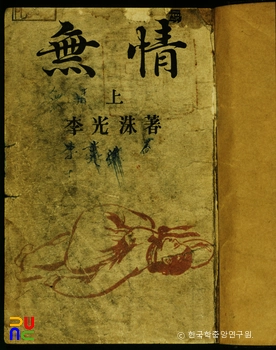 無情
上
李光洙著
ⓒ 한국학중앙연구원